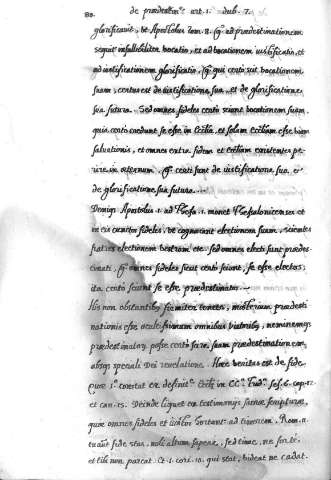 80. de prædestin.e art. 1. dub. 7.
glorificavit, ut Apostolus Rom. 8. sq. ad prædestinationem
sequit infallibiliter vocatio, et ad vocationem iustificatio, et
ad iustificationem glorificatio, sq. qui certo scit vocationem
suam, certus est de iustificatione sua, et de glorificatione
sua futura. Sed omnes fideles certo sciunt vocationem suam
quia certo credunt se esse in Ecclia, et solam Eccliam esse viam
salvationis, et omnes extra fidem et Eccliam existentes pe-
rire in æternum, sq. certi sunt de iustificatione sua, et
de glorificatione sua futura.
Deniq Apostolus 1. ad Thess. 1. monet Thessalonicenses et
in eis cunctos fideles, ut cognoscant electionem suam, scientes
fratres electionem vestram etc. sed omnes electi sunt prædes-
tinati, sq. omnes fideles sicut certo sciunt, se esse electos,
ita certo sciunt se esse prædestinatos.
His non obstantibus firmiter tenetis, misterium prædesti
nationis esse omnibus viatoribus, neminemq
prædestinatoꝝ posse certo scire suam prædestinationem,
absq speciali Dei revelatione. Hæc veritas est de fide
Quæ 1.º constat ex definit.e Ecclæ in CC.º Trid.º ses. 6. cap. 12.
et can. 15. Deinde liquet ex testimonijs sacræ scripturæ,
quæ omnes fideles et iustos hortant ad timorem. Rom. 11.
tu aut fide stas, noli altum sapere, sed time, ne forte
et tibi non parcat. Et 1. Cori. 10. qui stat, videat ne cadat.